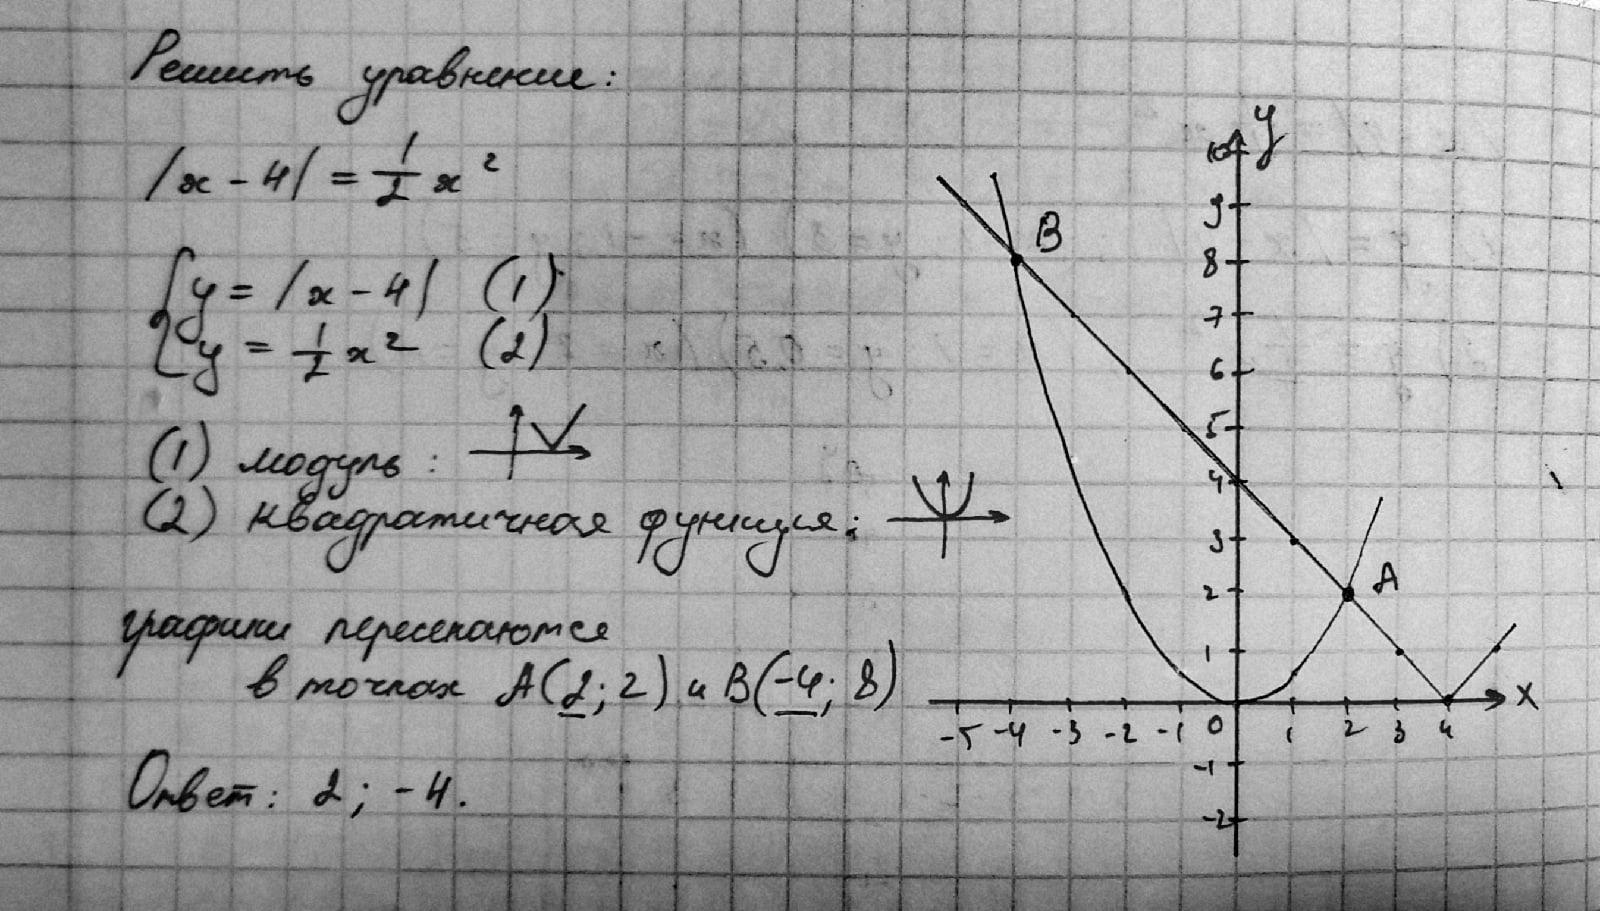 Решить уравнение:
|x - 4| = 1/2 x²
{ y = |x - 4| (1)
{ y = 1/2 x² (2)
(1) модуль:
(2) квадратичная функция:
графики пересекаются
в точках A(2; 2) и B(-4; 8)
Ответ: 2; -4.
y
10
9
8
7
6
5
4
3
2
1
B
A
-5 -4 -3 -2 -1 0 1 2 3 4 x
-1
-2